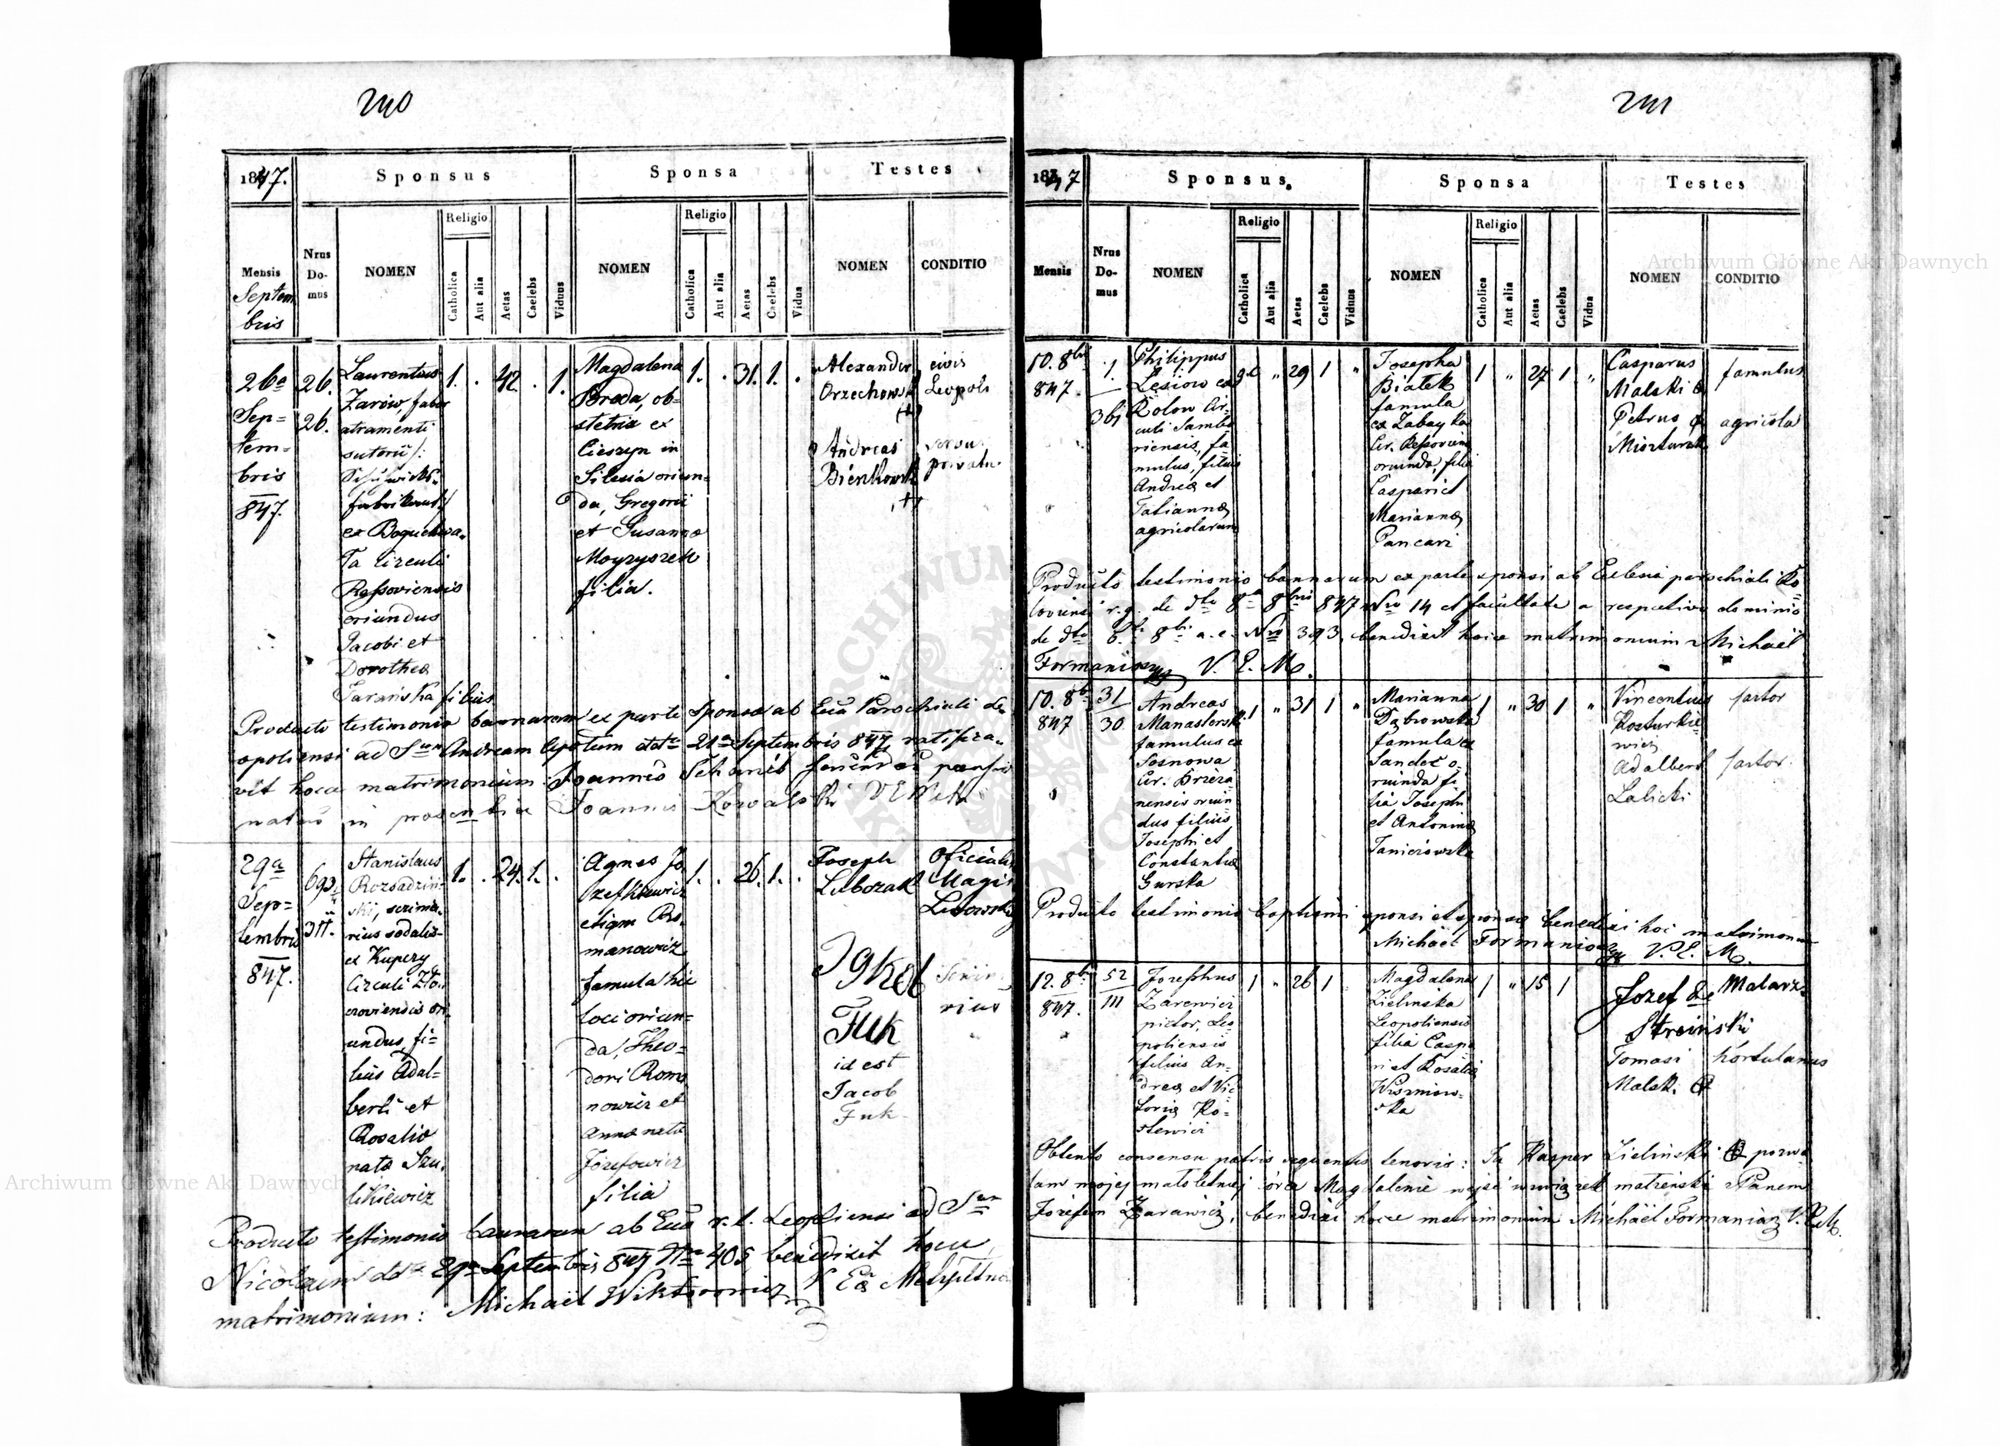 240
1847.
Sponsus
Sponsa
Testes
Mensis
Septem
bris
Nrus
Do-
mus
NOMEN
Religio
Catholica
Aut alia
Aetas
Caelebs
Viduus
NOMEN
Religio
Catholica
Aut alia
Aetas
Caelebs
Vidua
NOMEN
CONDITIO
26a
Sep=
tem=
bris
847.
26.
26.
Laurentius
Zariw, faber
atramenti
sutorii/:
ex
Ta Circuli
Ressoviensis
oriundus
Jacobi et
Dorothea
Tarańska filius
1. . 42 . 1.
Magdalena
Breda, ob-
stetrix ex
Cieszyn in
Silesia oriun-
da, Gregorii
et Susanna
Moyzyszek
filia.
1. . 31. 1. .
Alexander
Orzechowski
+
Andreas
Bieńkowski
+
civis
Leopoli
privatus
Producto testimonio bannorum ex parte Sponsa ab Ecca Parochiali Le
opoliensi ad Sum Andream Apostum ddto 21a Septembris 847
vit hocce matrimonium Joannes
in prasentia Joannes Kowalski
29a
Sep=
tembris
847.
693.
311.
Stanislaus
Rozsadziń-
ski,
rius sodalis
ex Kupczy
Circuli Zło-
czoviensis ori
undus, fi-
lius Adal-
berti et
Rosalia
nata Szu.
likiewicz
1. . 24. 1. .
Agnes Jo
etiam Ro-
manowicz
famula hic
loci oriun-
da, Theo-
dori Roma
nowicz et
Anna nata
Józefowicz
filia
1. . 26. 1. .
Joseph
Lubozak
Oficialis
Magis
Ignat
Fuk
id est
Jacob
Fuk
rius
Producto testimonio bannorum ab Ecca r. l. Leopoliensi ad Sum
Nicolaum ddto 29a Septembris 847 Nro 405 benedixit hocce
matrimonium: Michael Wiktorowicz V Ea
241
1847
Sponsus.
Sponsa
Testes
Mensis
Nrus
Do-
mus
NOMEN
Religio
Catholica
Aut alia
Aetas
Caelebs
Viduus
NOMEN
Religio
Catholica
Aut alia
Aetas
Caelebs
Vidua
NOMEN
CONDITIO
10. 8bris
847.
1.
361
Philippus
Lesiow ex
Kolow Cir-
culi Sambo
riensis, fa-
mulus, filius
Andreæ et
Tatiannæ
agricolarum
" 29 1 "
Josepha
Białek
famula
ex Zabayka
Cir. Ressovien
oriunda, filia
Caspari et
Mariannæ
Pancari
1 " 27 1 "
Casparus
Malski
Petrus
Miszturak
famulus
agricola
Producto testimonio bannorum ex parte sponsi ab Eclesia parochiali Ko-
r.g. de dto 8a 8bris 847 Nro 14 et facultate a respective dominio
de dto 6t 8bri a.c. Nro 393. benedixit hocce matrimonium Michaël
Formaniosz V. E. M.
10. 8bris
847
31
30
Andreas
Manasterski
famulus ex
Sosnowa
Cir. Brzeża
nensis oriun
dus filius
Josephi et
Constantiæ
Gurska
1 " 31 1 "
Marianna
Dąbrowska
famula ex
Sandec o-
riunda fi-
lia Josephi
et Antoninæ
Janiczowska
1 " 30 1 "
Vincentius
Kosturkie
wicz
Adalbert
Lalicki
sartor
sartor
Producto testimonio baptismi sponsi et sponsæ benedixi hoc matrimonium
Michaël Formaniosz V. E. M.
12. 8bris
847.
52
111
Josephus
Zarewicz
pictor, Leo
poliensis
filius An-
dreæ et Vic
toriæ Ko-
stewicz
1 " 26 1
Magdalena
Zielinska
Leopoliensis
filia Caspa
ri et Rosaliæ
Wiszniow-
ska
1 " 15 1
Józef de
Streiński
Malarz
Tomasi
Malski
hortulanus
Obtento consensu patris sequentis tenoris: Ja Kasper Zielinski pozwa
lam mojej małoletniej córce Magdalenie wejść w związek małżenski z Panem
Józefem Zarawicz, benedixi hocce matrimonium Michaël Formaniosz V. E. M.
Archiwum Główne Akt Dawnych
Archiwum Główne Akt Dawnych